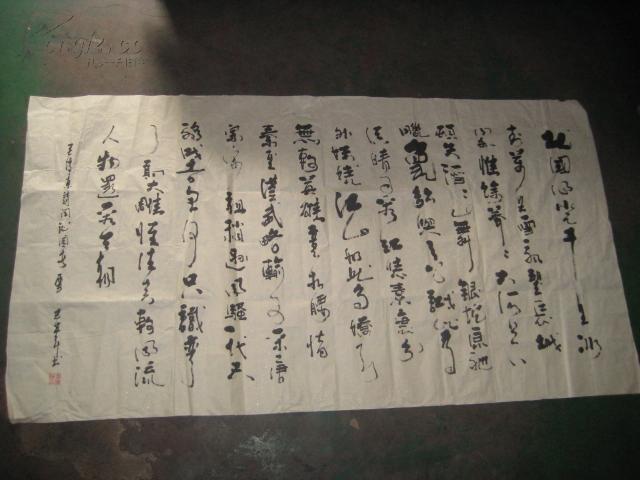 北国风光千里冰
封万里雪飘望长城
内外惟馀莽〻大河上下
顿失滔〻山舞银蛇原驰
腊象欲与天公试比高
须晴日看红妆素裹分
外妖娆江山如此多娇引
無数英雄竞折腰惜
秦皇漢武略输文采唐
宗宋祖稍逊风骚一代天
骄成吉思汗只識弯
弓射大雕俱往矣数风流
人物還看今朝
沁园春雪